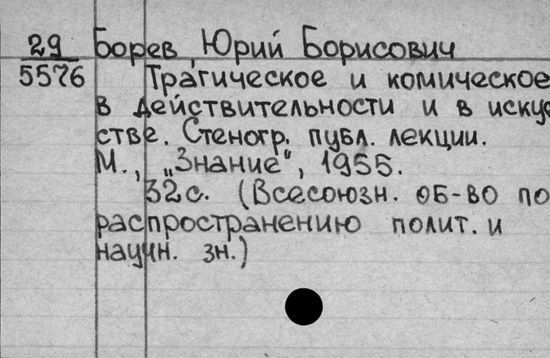 29 Борев, Юрий Борисович
5576 Трагическое и комическое
в действительности и в искус
стве. Стеногр. публ. лекции.
М., „Знание", 1955.
32с. (Всесоюзн. об-во по
распространению полит. и
научн. зн.)